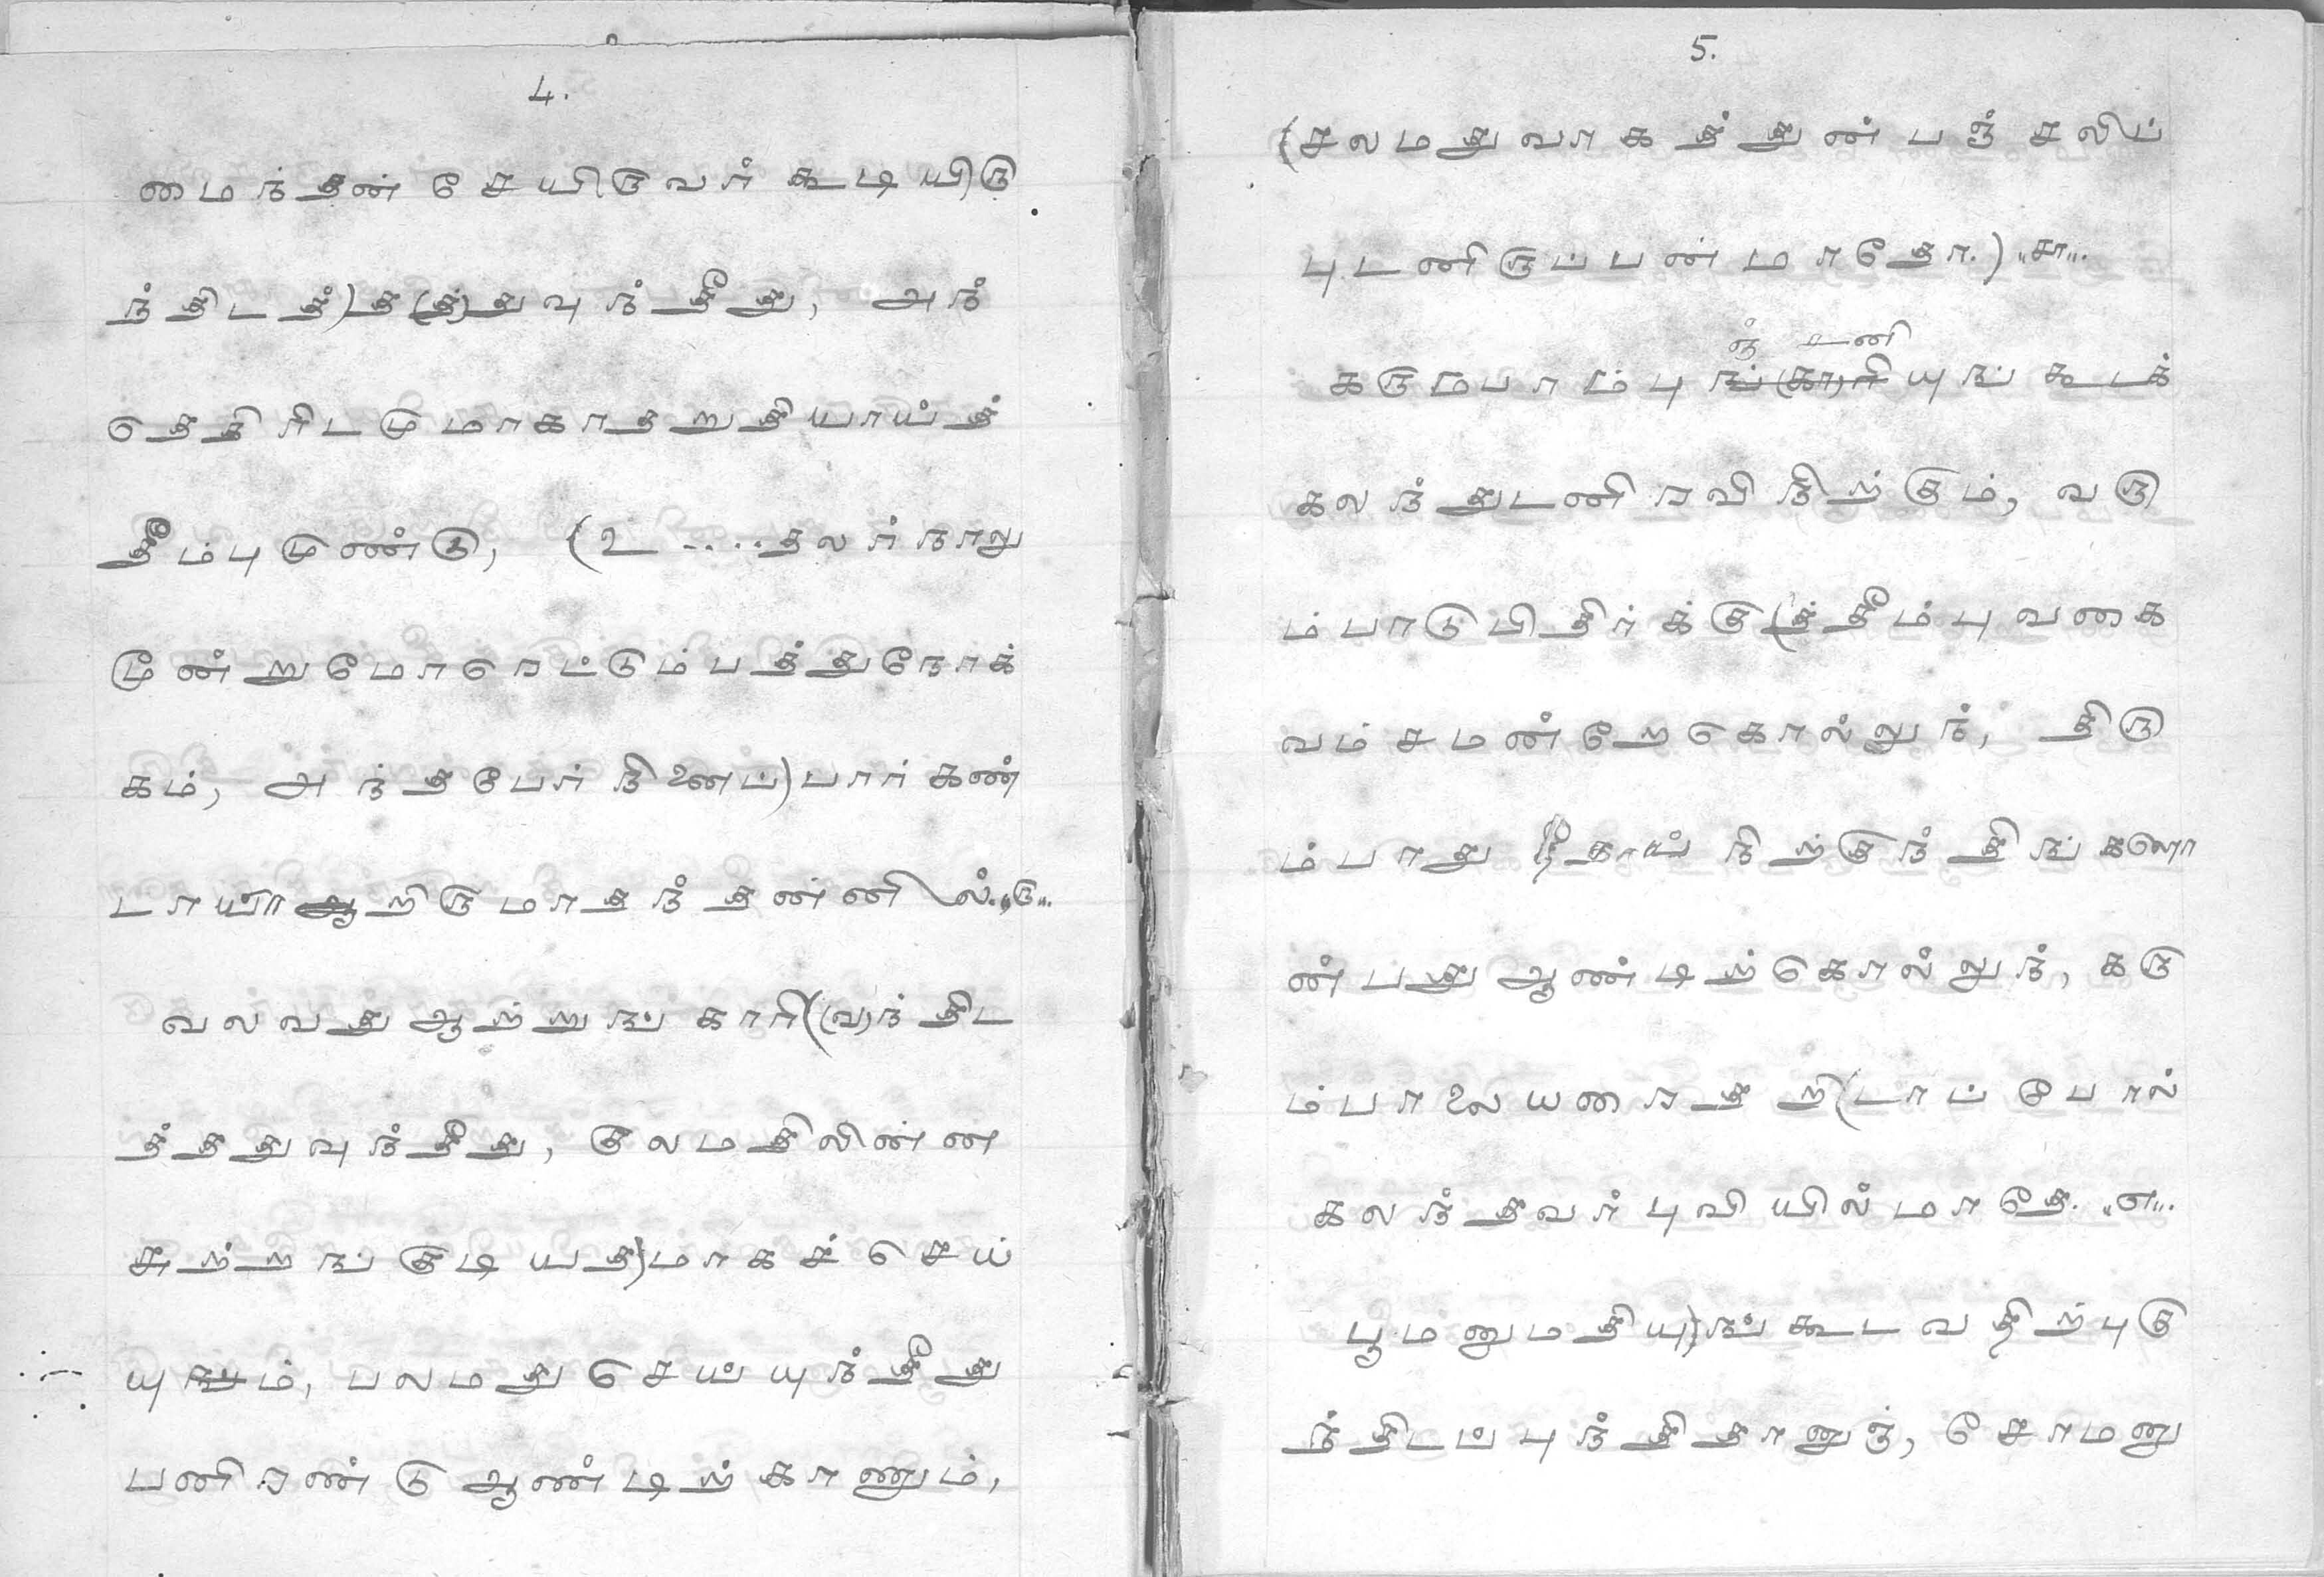 4.
மைந்தன் சேயிருவர் கூடியிரு
ந்திடத்)த(த்)துவுந்தீது, அந்
தெதிரிடமுமாகாதறுதியாய்த்
தீம்புமுண்டு, (உ....தலர்நாலு
மூன்றுமோரெட்டும்பத்துநோக்
கம், அந்தபேர்நினைப்)பார்கண்
டாயாறிருமாதந்தன்னில். ,,ரு,,.
வலவது ஆற்றுங்காரி((வ)ந்திட
த்ததுவுந்தீது, குலமதிலின்ன
சுற்றங்குடியத)மாகச்செய்
யும், பலமது செய்யுந்தீது
பனிரண்டு ஆண்டிற்காணும்,
5.
(சலமதுவாகத்துன்பஞ்சலிப்
புடனிருப்பன்மாதோ.) ,,சா,,.
ஞ் உனி
கரும்பாம்புங்(கா)ரியுங்கூடக்
கலந்துடனிரவிநிற்கும், வரு
ம்பாடுபிதிர்க்கு(த்தீம்புவகை
வம்சமன்றேகொல்லுந், திரு
ம்பாது நீதாய் நிற்குந்திங்களொ
ன்பது ஆண்டிற்கொல்லுந், கரு
ம்பாலையரைதறி(டாப்போல்
கலந்தவர்புவியில்மாதே. ,,எ,,.
பூமனுமதியு)ங்கூடவதிற்புகு
ந்திடப்புந்திதானுஞ், சோமனு